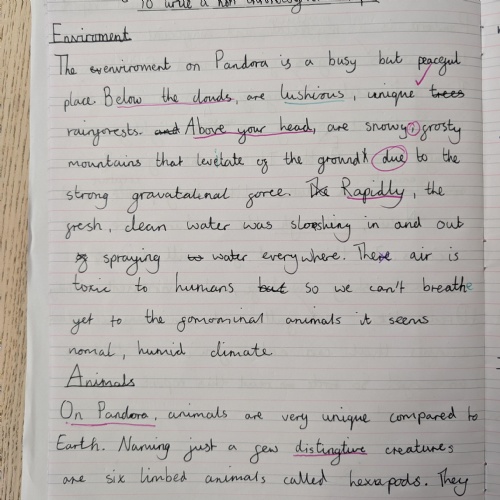 To write a non chronological
Enviroment
The enviroment on Pandora is a busy but peaceful
place. Below the clouds, are lushious, unique trees
rainforests. and Above your head, are snowy, frosty
mountains that levetate of the ground due to the
strong gravatalinal force. The Rapidly, the
fresh, clean water was sloshing in and out
of spraying to water everywhere. The air is
toxic to humans but so we can't breath
yet to the nomal animals it seems
nomal, humid climate
Animals
On Pandora, animals are very unique compared to
Earth. Naming just a few distingtive creatures
are six limbed animals called hexapods. They